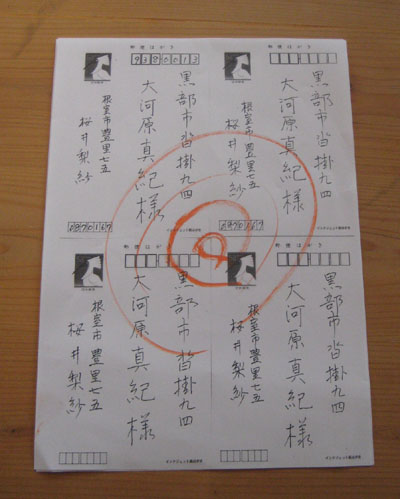 郵便はがき
9380013
黒部市沓掛九四
大河原真紀様
根室市豊里七五
桜井梨紗
郵便はがき
黒部市沓掛九四
大河原真紀様
根室市豊里七五
桜井梨紗
郵便はがき
黒部市沓掛九四
大河原真紀様
根室市豊里七五
桜井梨紗
インクジェット紙はがき
郵便はがき
黒部市沓掛九四
大河原真紀様
根室市豊里七五
桜井梨紗